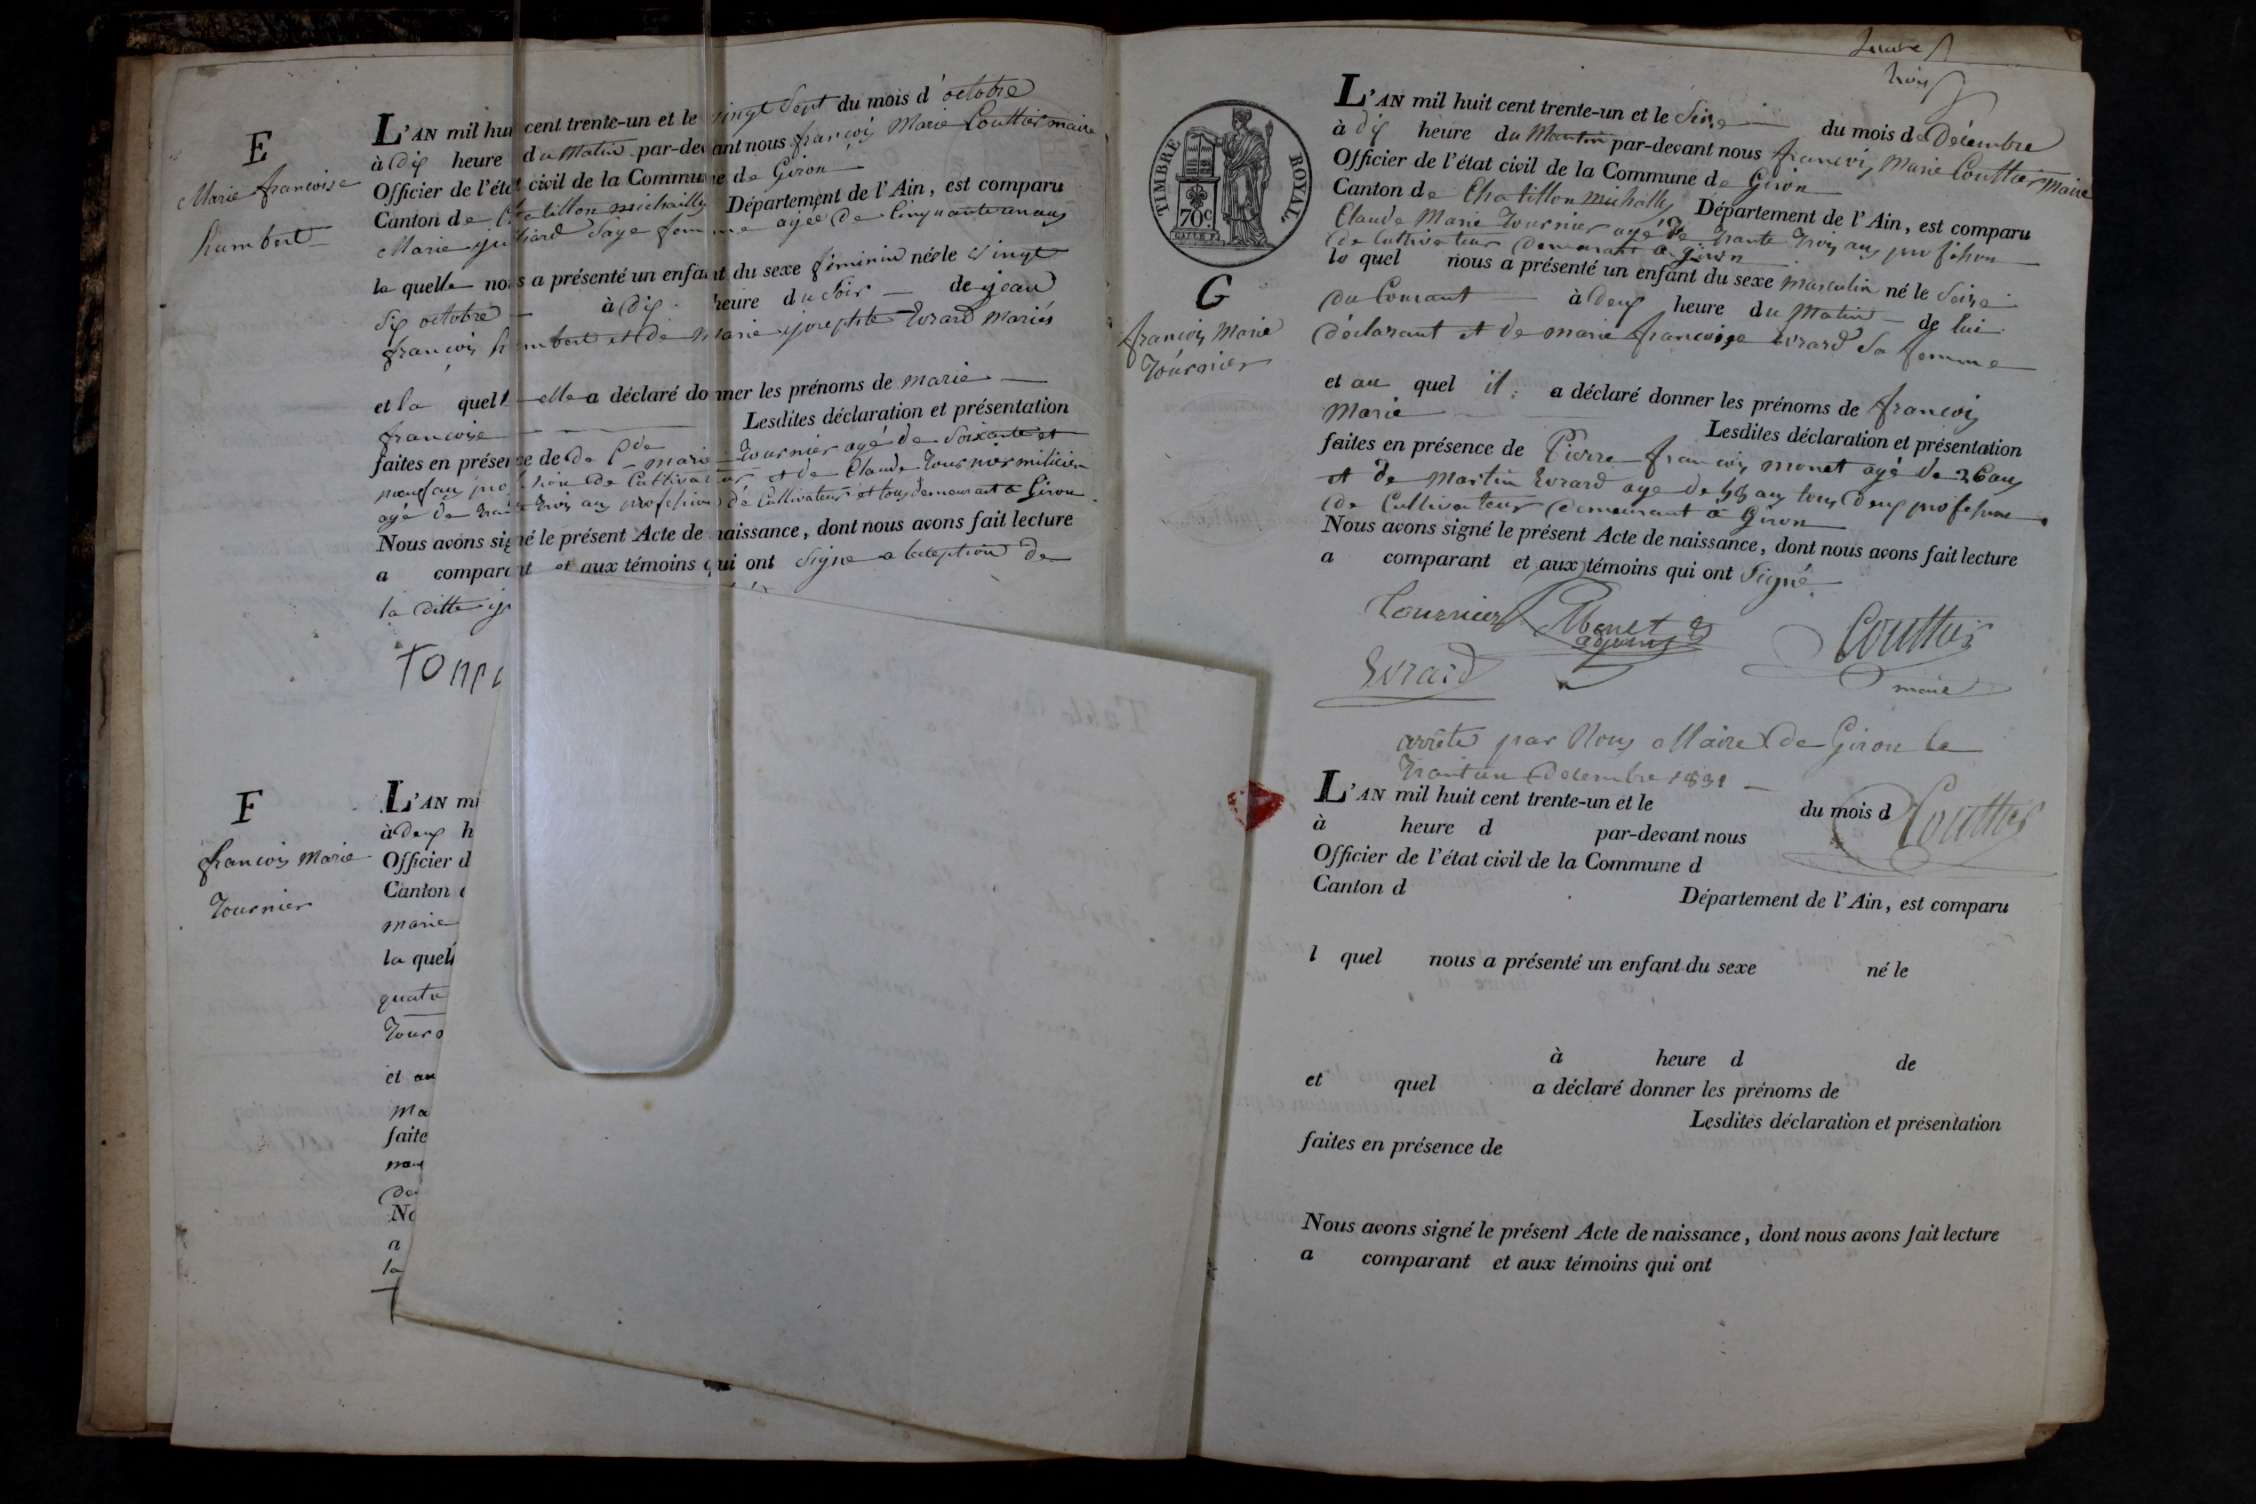 E
Marie francoise
humbert
L'AN mil huit cent trente-un et le vingt Sept du mois d'octobre
à dix heure du Matin par-devant nous françois Marie Couttier maire
Officier de l'état civil de la Commune de Giron
Canton de Chatillon michaille Département de l'Ain, est comparu
Marie julliard Sage femme agée de Cinquante un ans
la quelle nous a présenté un enfant du sexe féminin née le vingt
Six octobre à dix heure du Soir de jean
françois humbert et de Marie josephte Evrard mariés
et la quelle elle a déclaré donner les prénoms de marie
francoise Lesdites déclaration et présentation
faites en présence de de Cde marie Tournier agé de Soixante et
neuf ans profession de Cultivateur et de Claude Tournier milicien
agé de trante trois ans profession de Cultivateur et tous demeurant a Giron
Nous avons signé le présent Acte de naissance, dont nous avons fait lecture
a comparant et aux témoins qui ont Signé a leception de
la ditte
F
francois Marie
Tournier
L'AN mi
à deux h
Officier d
Canton
marie
la quel
quatre
Tour
et au
ma
faite
neuf
de
No
a
la
TIMBRE ROYAL
70c
G
francois Marie
Tournier
L'AN mil huit cent trente-un et le Seize du mois de Décembre
à dix heure du Matin par-devant nous francois Marie Couttier Maire
Officier de l'état civil de la Commune de Giron
Canton de Chatillon michaille Département de l'Ain, est comparu
Claude Marie Tournier agé de trante trois ans profession
de Cultivateur demeurant a Giron
le quel nous a présenté un enfant du sexe masculin né le Seize
du Courant à deux heure du Matin de lui
déclarant et de marie francoise Evrard Sa femme
et au quel il a déclaré donner les prénoms de francois
Marie Lesdites déclaration et présentation
faites en présence de Pierre francois monet agé de 26 ans
et de martin Evrard age de ans tous deux profession
de Cultivateur demeurant a Giron
Nous avons signé le présent Acte de naissance, dont nous avons fait lecture
a comparant et aux témoins qui ont Signé
Tournier Monet Couttier
adjoint
Evrard maire
arrêté par Nous Maire de Giron le
trant un decembre 1831
Couttier
L'AN mil huit cent trente-un et le du mois d
à heure d par-devant nous
Officier de l'état civil de la Commune d
Canton d Département de l'Ain, est comparu
l quel nous a présenté un enfant du sexe né le
à heure d de
et quel a déclaré donner les prénoms de
Lesdites déclaration et présentation
faites en présence de
Nous avons signé le présent Acte de naissance, dont nous avons fait lecture
a comparant et aux témoins qui ont